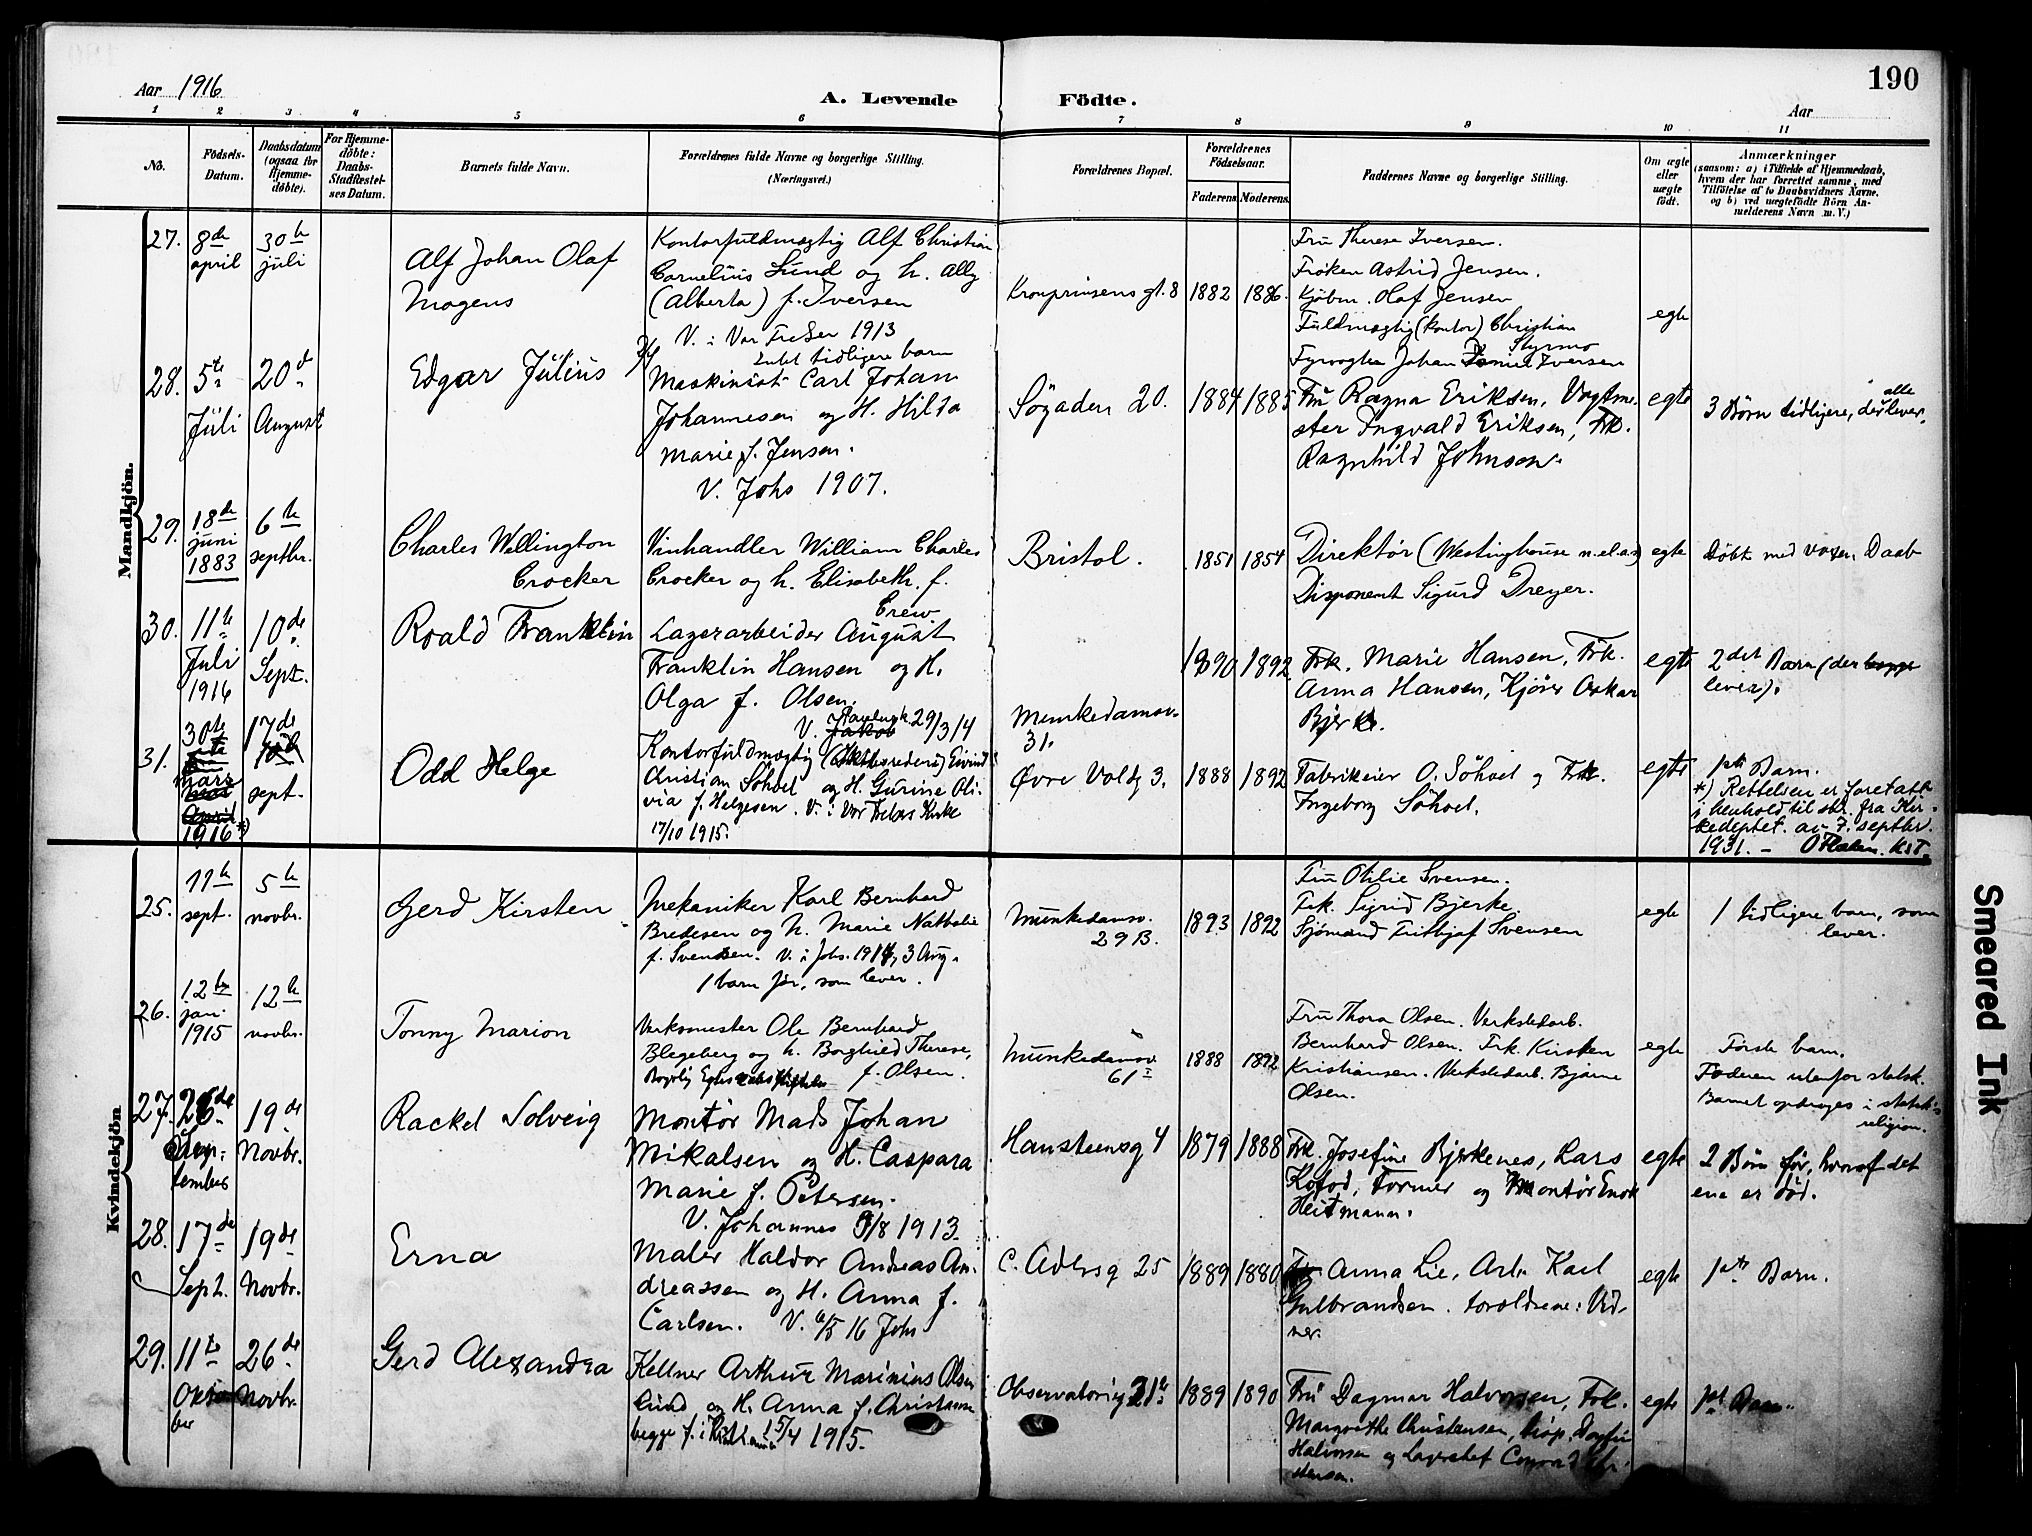 190
Aar 1916
A. Levende Födte.
Aar
1 2 3 4 5 6 7 8 9 10 11
Nö.
Födsels-Datum.
Daabsdatum (ogsaa for Hjemme-döbte).
For Hjemme-döbte: Daabs-Stadfæstel-ses Datum.
Barnets fulde Navn.
Forældrenes fulde Navne og borgerlige Stilling. (Næringsvei.)
Forældrenes Bopæl.
Forældrenes Födselsaar.
Faderens Moderens
Faddernes Navne og borgerlige Stilling.
Om ægte eller uægte födt.
Anmærkninger
(saasom: a) i Tilfælde af Hjemmedaab, hvem der har forrettet samme, med Tilföielse af to Daabsvidners Navne, og b) ved uægtefödte Börn An-melderens Navn m. V.)
Mandkjön.
27. 8de april
30te juli
Alf Johan Olaf
Mogens
Kontorfuldmægtig Alf Christian
Cornelius Lund og h. Ally
(Alberta) f. Iversen
V. i Vor Frelser 1913
Intet tidligere barn
Kronprinsens gt. 8
1882 1886.
Fru Therese Iversen.
Frøken Astrid Jensen.
Kjøbm. Olaf Jensen
Fuldmægtig (kontor) Christian
Styrmo
Fyrvogter Johan Iversen
egte
28. 5te Juli
20de August
Edgar Julius
Maskinist Carl Johan
Johannesen og H. Hilda
Marie f. Jensen.
V. Johs 1907.
Søgaden 20.
1884 1885
Fru Ragna Eriksen, Vogtme-
ster Ingvald Eriksen, Frk.
Ragnhild Johnson.
egte
3 Børn tidligere, der alle lever.
29. 18de juni 1883
6te septbr.
Charles Wellington
Crocker
Vinhandler William Charles
Crocker og h. Elisabeth f.
Crew.
Bristol.
1851 1854
Direktør (Westinghouse n.el.as)
Disponent Sigurd Dreyer.
egte
Døbt med voxen Daab
30. 11te Juli 1916
10de Sept.
Roald Franklin
Lagerarbeider August
Franklin Hansen og H.
Olga f. Olsen.
V. Jakob 29/3 14
Munkedamsv.
31.
1890 1892
Frk. Marie Hansen, Frk.
Anna Hansen, Kjører Oskar
Bjerk.
egte
2det Barn (der begge
lever).
31. 30te mars april 1916 *)
17de sept.
Odd Helge
Kontorfuldmægtig Eivind
Kristian Söhoel og H. Gurine Oli-
via f. Helgesen. V. i Vor Frelsers Kirke
17/10 1915.
Øvre Voldg 3.
1888 1892
Fabrikeier O. Söhoel og Frk.
Ingeborg Söhoel.
egte
1ste Barn.
*) Rettelsen er foretatt
i henhold til skr. fra Kir-
kedeptet. av 7. septbr.
1931. –
Kvindekjön
25. 11te sept.
5te novbr.
Gerd Kirsten
Mekaniker Karl Bernhard
Bredesen og h. Marie Nathalie
f. Svendsen. V. i Johs. 1914, 3 Aug.
1 barn før, som lever.
Munkedamsv.
29 B.
1893 1892
Fru Othilie Svensen.
Frk. Sigrid Bjerke
Sjømand Fritjof Svensen
egte
1 tidligere barn, som
lever.
26. 12te jan. 1915
12te novbr.
Tonny Marion
Verksmester Ole Bernhard
Blegeberg og h. Borghild Therese,
f. Olsen.
Munkedamsv.
61 I
1888 1892
Fru Thora Olsen. Verkstedarb.
Bernhard Olsen. Frk. Kirsten
Kristiansen. Verkstedarb. Bjarne
Olsen.
egte
Første barn.
Faderen utenfor statsk.
Barnet opdrages i statsk's
religion.
27. 26de September
19de Novbr.
Rackel Solveig
Montör Mads Johan
Mikalsen og H. Caspara
Marie f. Petersen.
V. Johannes 9/8 1913
Hansteensg 4
1879 1888
Frk. Josefine Bjerkenes, Lars
Kofod, Former og Montör Enok
Heitmann.
egte
2 Börn før, hvoraf det
ene er död.
28. 17de Sept.
19de Novbr.
Erna
Maler Haldor Andreas An-
dreassen og H. Anna f.
Carlsen. V. 6/5 16 Johs
C. Adlersg 25
1889 1880
Anna Lie, Arb. Karl
Gulbrandsen. Forældrene: Vid-
ner.
egte
1ste Barn.
29. 11te Oktober
26de Novbr.
Gerd Alexandra
Kellner Arthur Marinius Olsen
Lund og H. Anna f. Christiansen
begge f. i 15/4 1915.
Observatorieg 21b
1889 1890
Fru Dagmar Halvorsen, Frk.
Margrethe Christensen,
Halvorsen og Lagerchef Conrad
egte
1ste Barn.
Smeared Ink